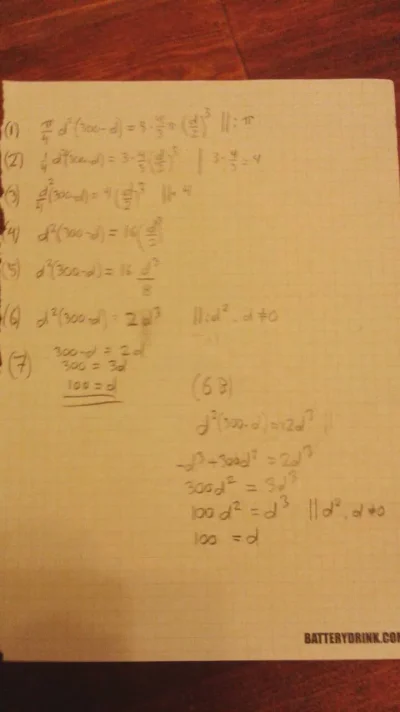 (1) π/4 d²(300-d) = 3 · 4/3 π (d/2)³ ||: π
(2) 1/4 d²(300-d) = 3 · 4/3 (d/2)³ | 3 · 4/3 = 4
(3) d²/4 (300-d) = 4 (d/2)³ || · 4
(4) d²(300-d) = 16 (d/2)³
(5) d²(300-d) = 16 d³/8
(6) d²(300-d) = 2d³ ||: d², d≠0
(7) 300-d = 2d
300 = 3d
100 = d
(6B)
d²(300-d) = 2d³
-d³+300d² = 2d³
300d² = 3d³
100d² = d³ || d², d≠0
100 = d
BATTERYDRINK.CO